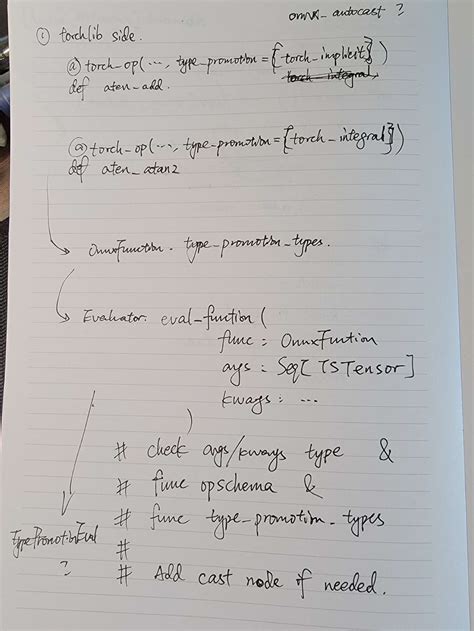 onnx_autocast ?
① torchlib side.
@ torch_op(..., type-promotion = {torch_implicit})
torch integral
def aten_add.
@ torch_op(..., type-promotion = {torch_integral})
def aten_atan2
OnnxFunction. type_promotion_types.
Evaluator. eval-function (
func : OnnxFuntion
args : Seq[TSTensor]
kwargs : ...
)
# check args/kwargs type &
# func opschema &
# func type_promotion_types
TypePromotionEval
#
?
# Add cast node if needed.